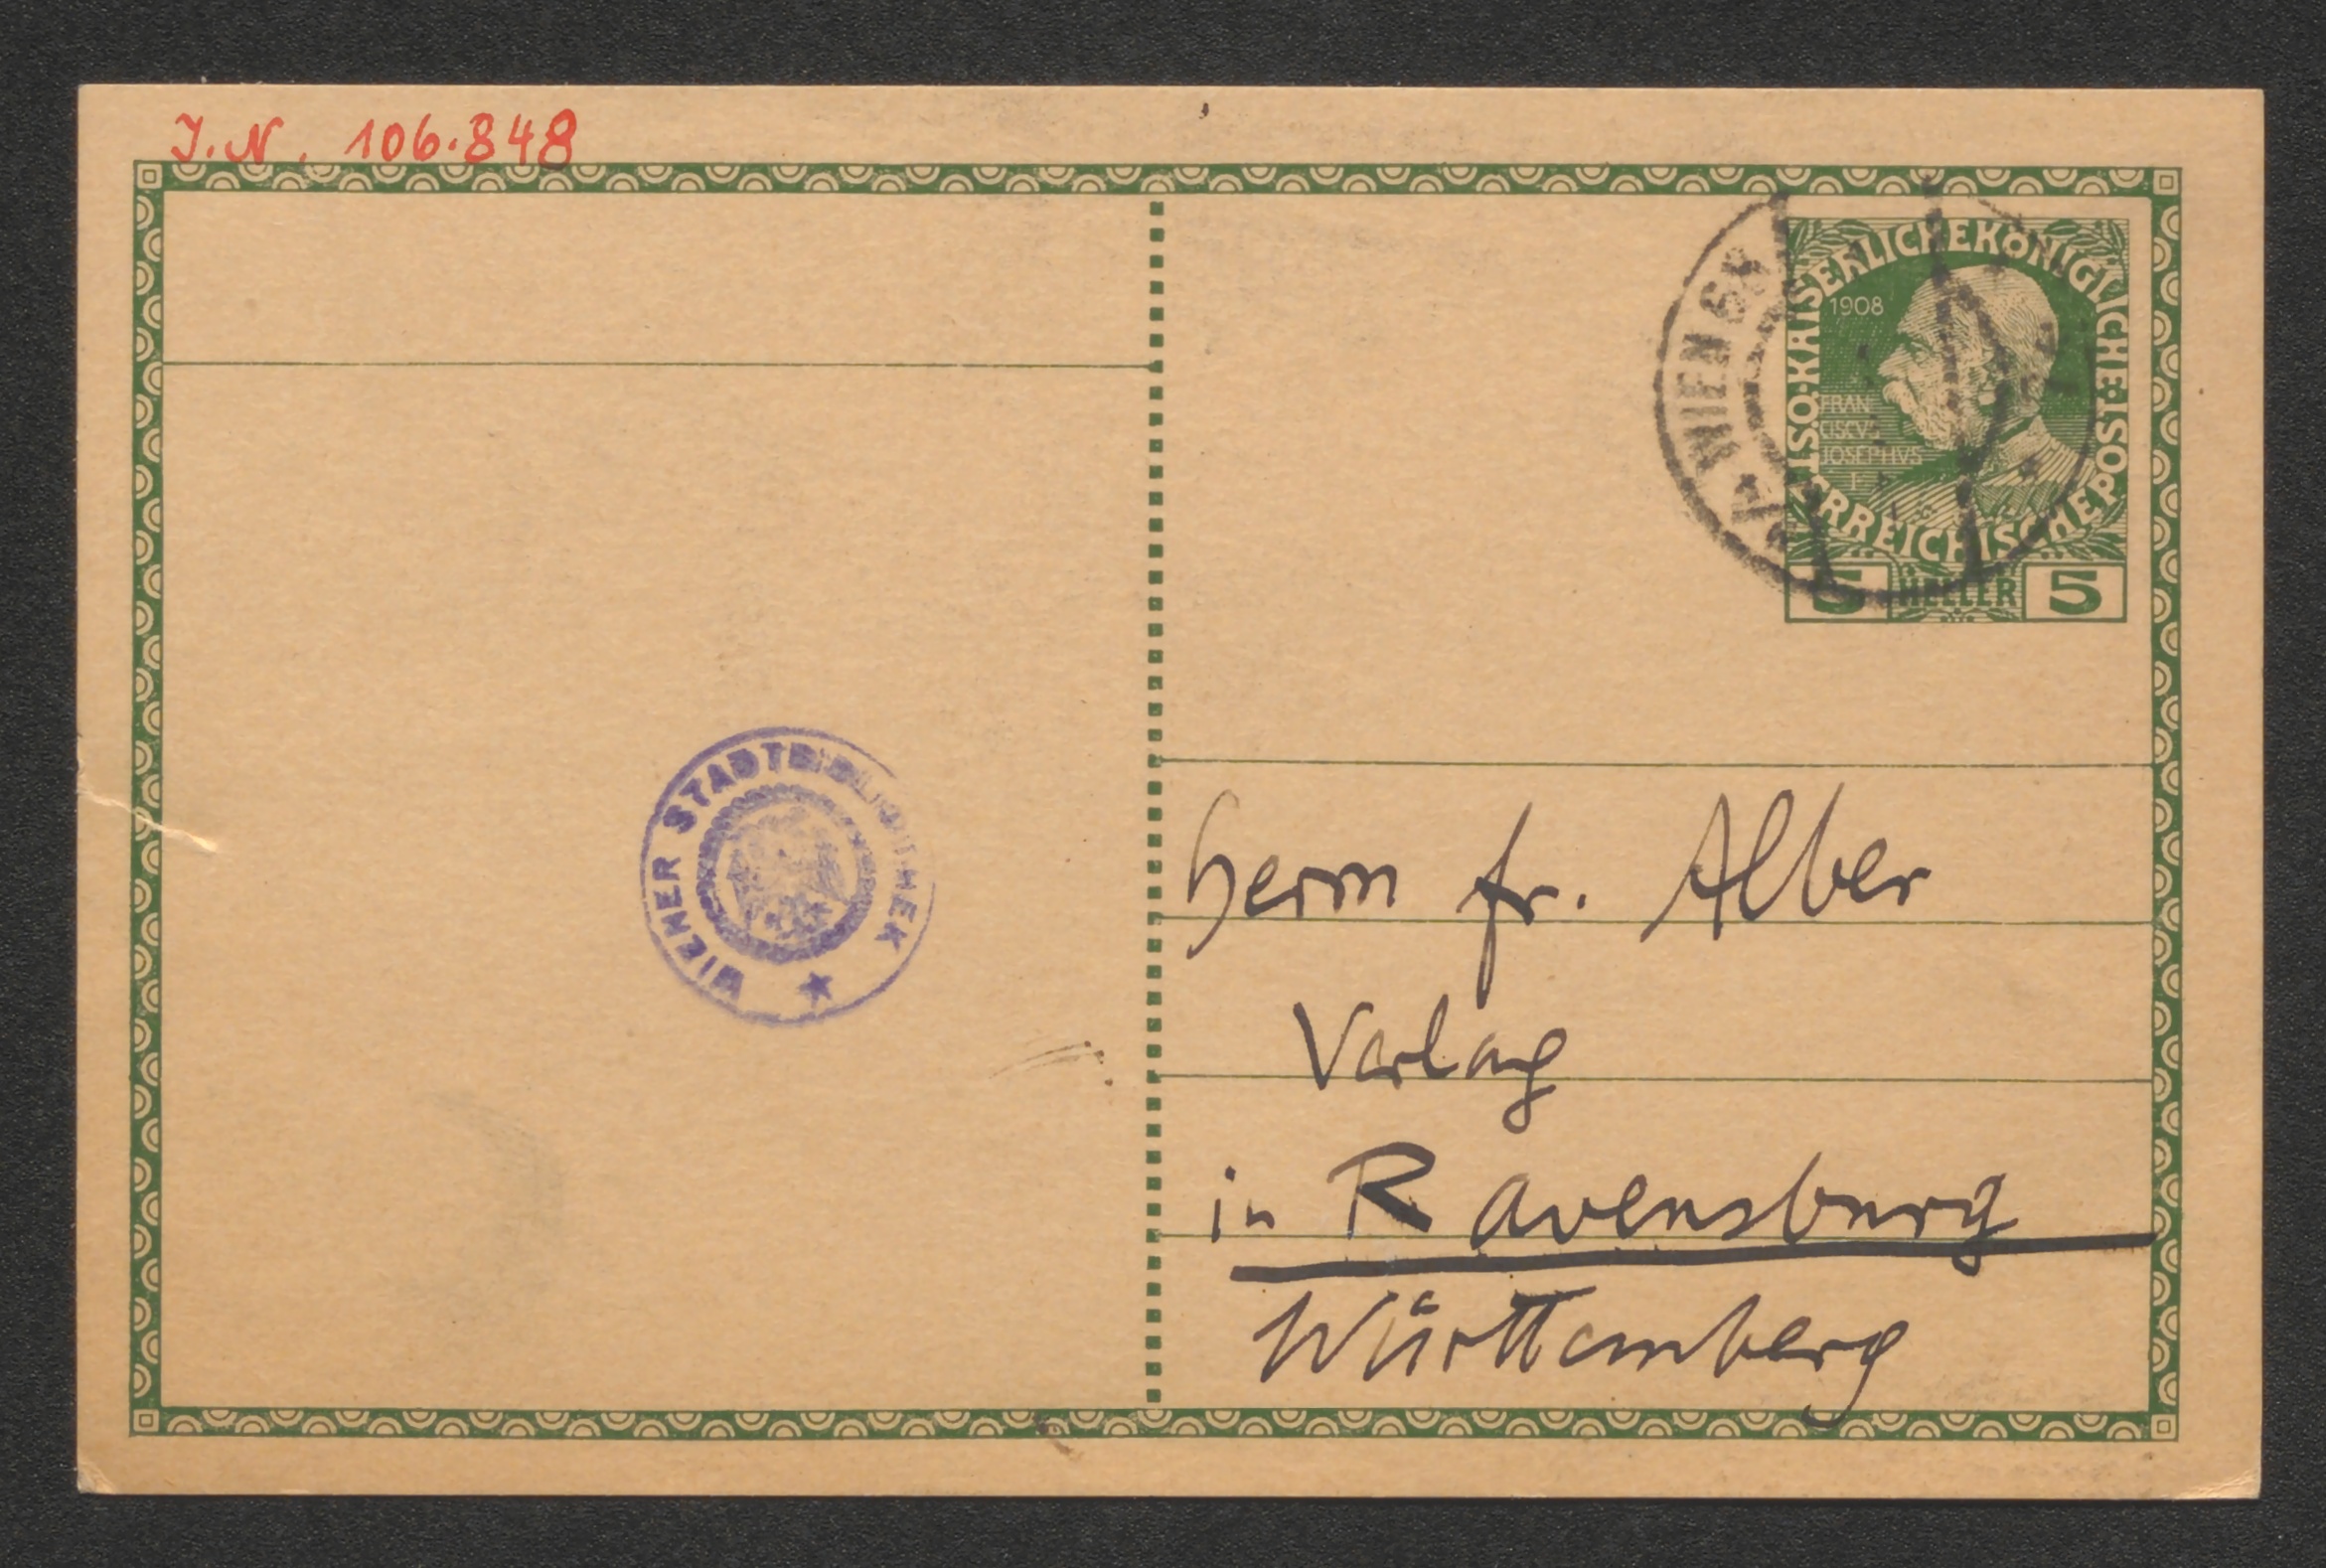 J.N. 106.848
KAISERLICHE KÖNIGLICHE ÖSTERREICHISCHE POST
1908
FRAN
CISCVS
JOSEPHVS
I
5 HELLER 5
WIEN
WIENER STADTBIBLIOTHEK
Herrn Fr. Alber
Verlag
in Ravensburg
Württemberg